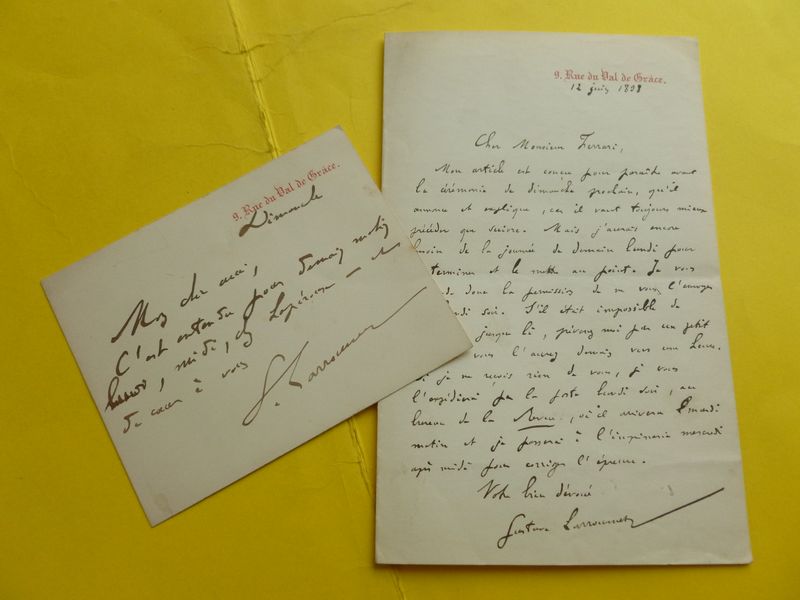 9. Rue du Val de Grâce.
Dimanche
Mon cher ami,
C'est entendu pour demain matin
lundi, midi, chez Lapérouse – et
de cœur à vous
G. Larroumet
9. Rue du Val de Grâce.
12 juin 1898
Cher Monsieur Ferrari,
Mon article est conçu pour paraître avant
la cérémonie de dimanche prochain, qu'il
annonce et explique, car il vaut toujours mieux
précéder que suivre. Mais j'aurais encore
besoin de la journée de demain lundi pour
terminer et le mettre au point. Je vous
donc la permission de ne vous l'envoyer
soir. S'il était impossible de
jusque là, prévenez moi par un petit
vous l'aurez demain vers une heure.
Si je ne reçois rien de vous, je vous
l'expédierai par la poste lundi soir, au
bureau de la Revue, où il arrivera mardi
matin et je passerai à l'imprimerie mercredi
après midi pour corriger l'épreuve.
Votre bien dévoué
Gustave Larroumet